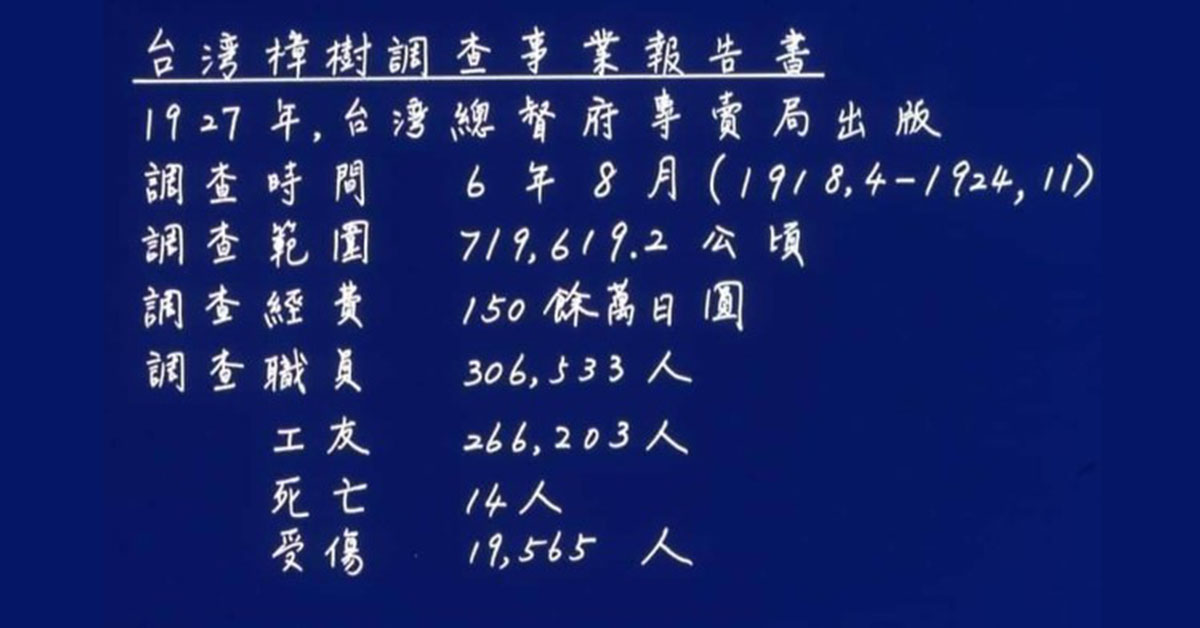 台湾樟樹調查事業報告書
1927年,台湾總督府專賣局出版
調查時間 6年8月(1918,4-1924,11)
調查範圍 719,619.2公頃
調查經費 150餘萬日圓
調查職員 306,533人
工友 266,203人
死亡 14人
受傷 19,565人